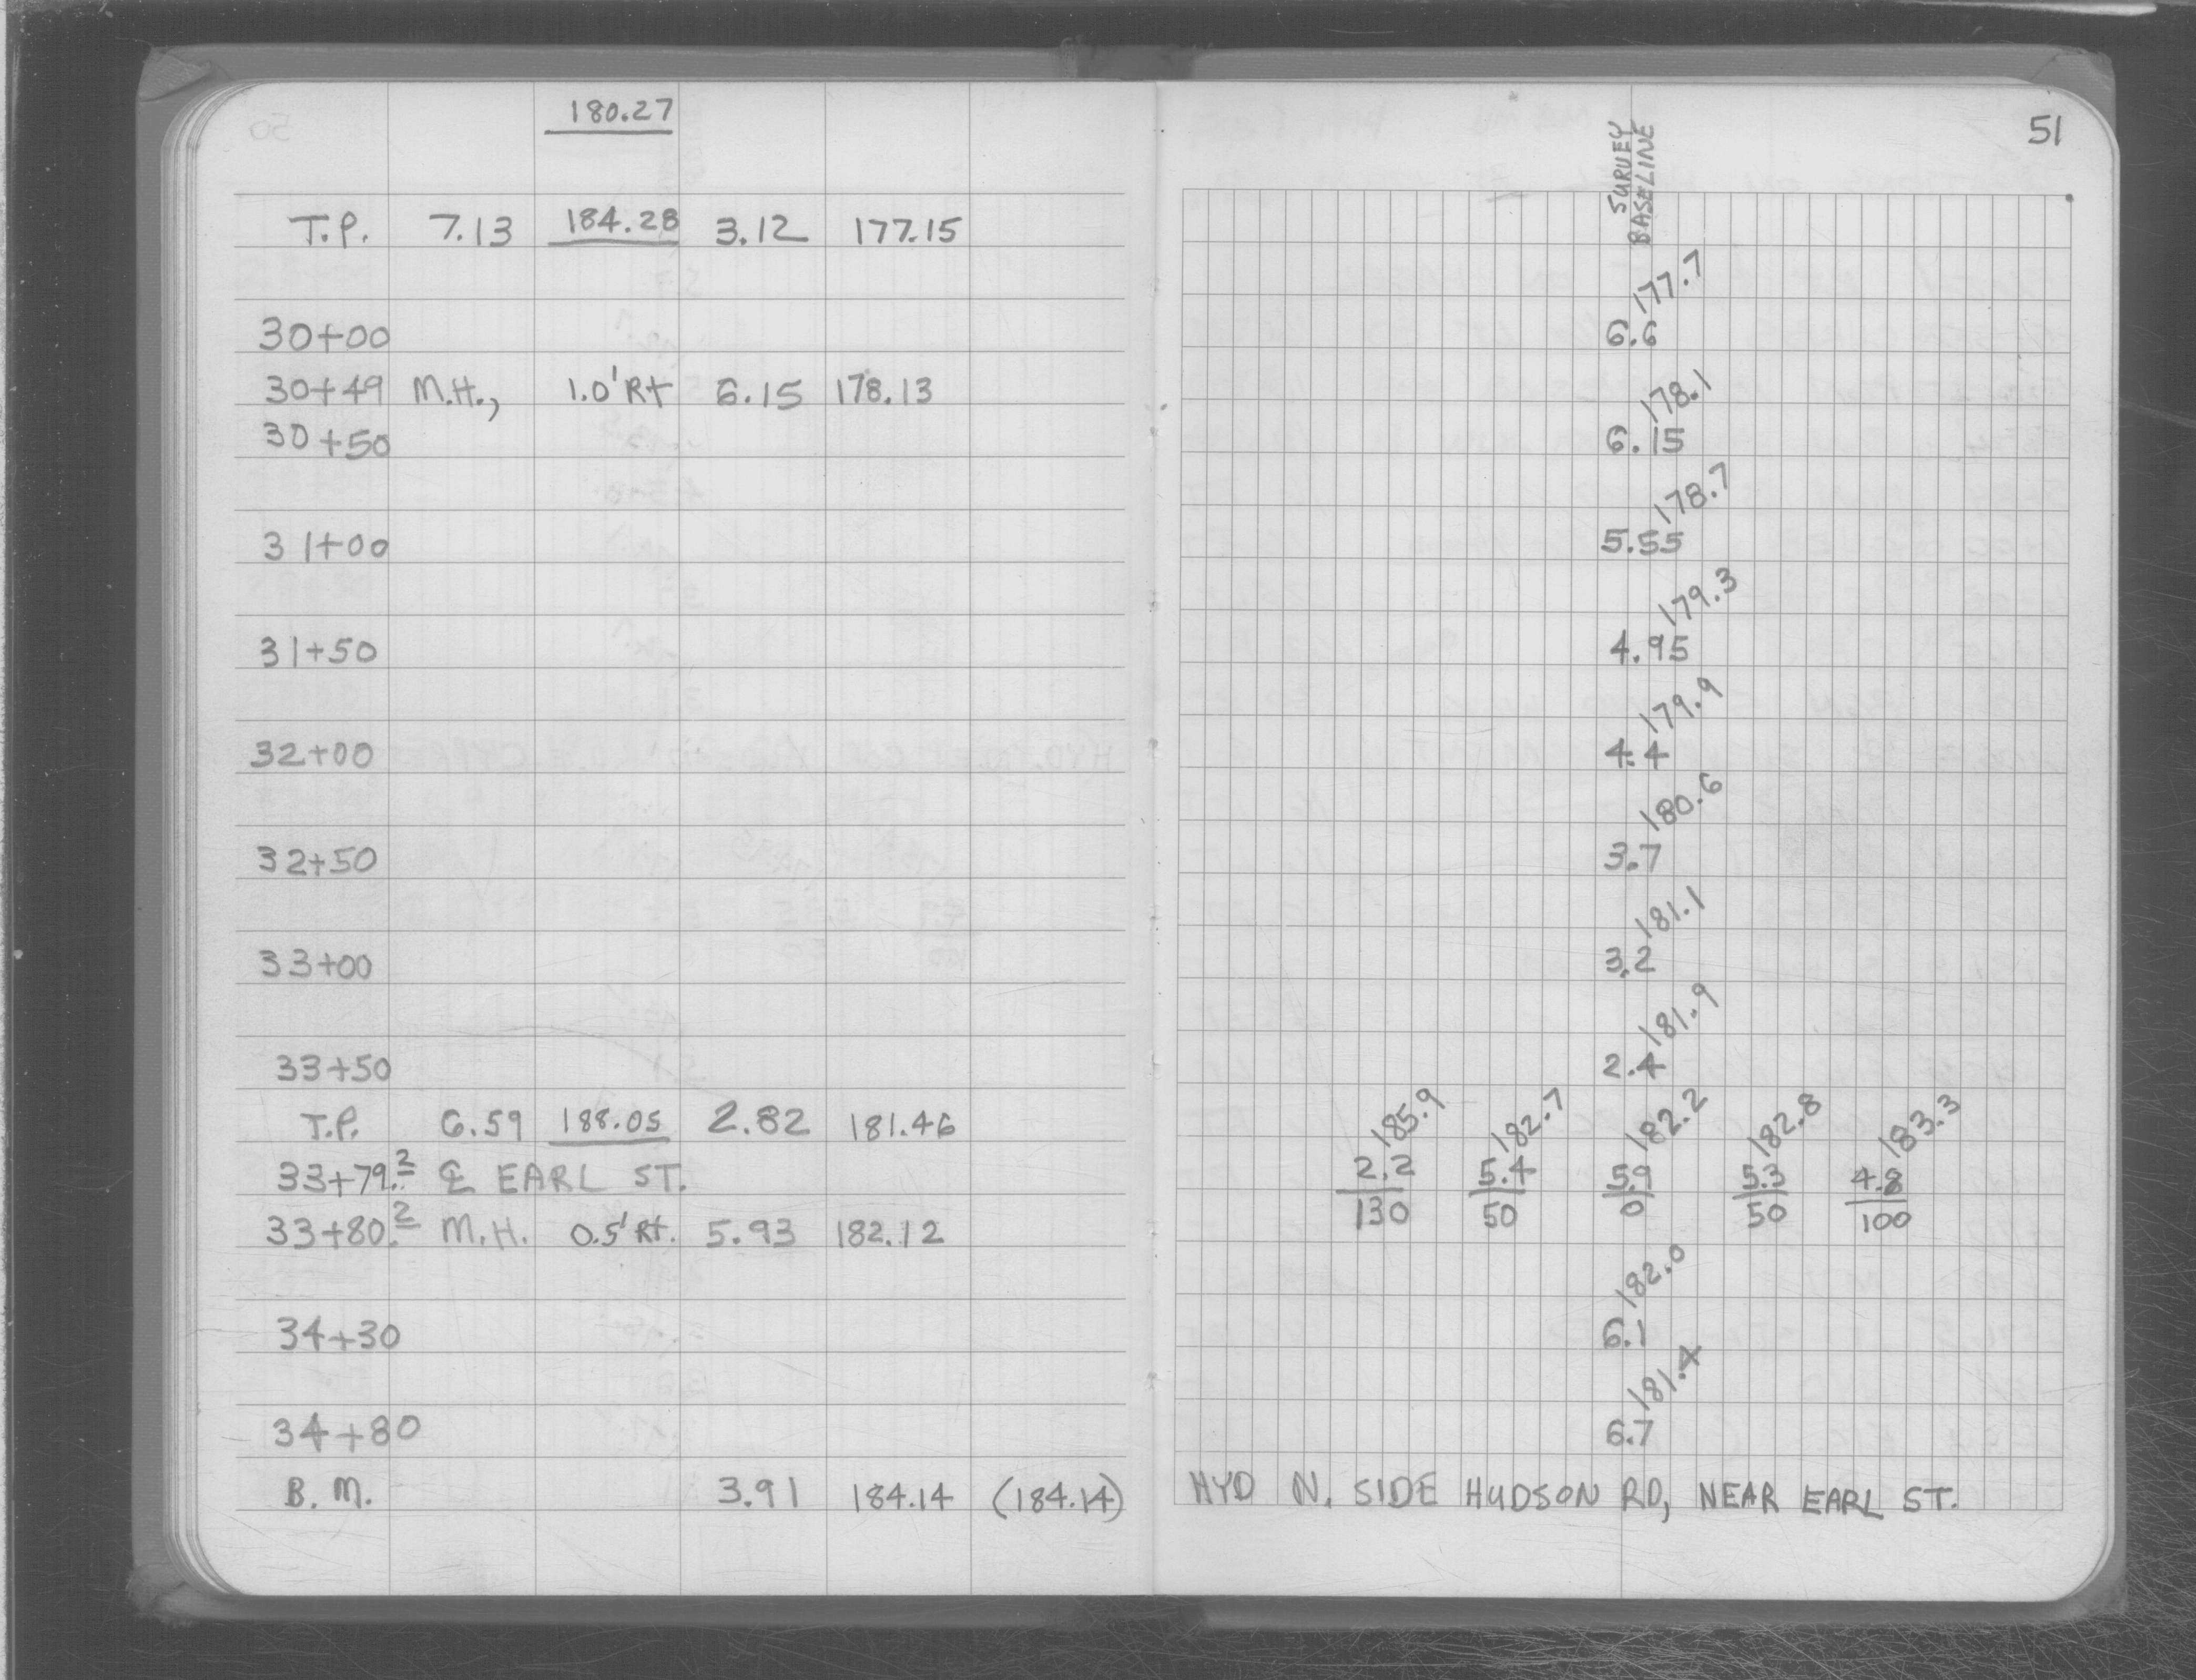 180.27
T.P. 7.13 184.28 3.12 177.15
30+00
30+49 M.H., 1.0' Rt 6.15 178.13
30+50
31+00
31+50
32+00
32+50
33+00
33+50
T.P. 6.59 188.05 2.82 181.46
33+79.2 ℄ EARL ST.
33+80.2 M.H. 0.5' Rt. 5.93 182.12
34+30
34+80
B.M. 3.91 184.14 (184.14)
51
SURVEY
BASELINE
177.7
6.6
178.1
6.15
178.7
5.55
179.3
4.95
179.9
4.4
180.6
3.7
181.1
3.2
181.9
2.4
185.9 182.7 182.2 182.8 183.3
2.2 5.4 5.9 5.3 4.8
130 50 0 50 100
182.0
6.1
181.4
6.7
HYD N. SIDE HUDSON RD, NEAR EARL ST.